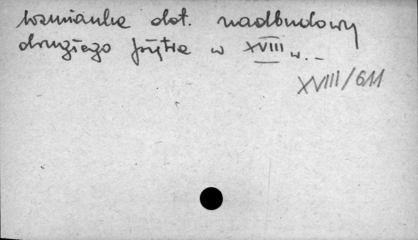 wzmianka dot. nadbudowy
drugiego piętra w XVIII w. -
XVIII/611